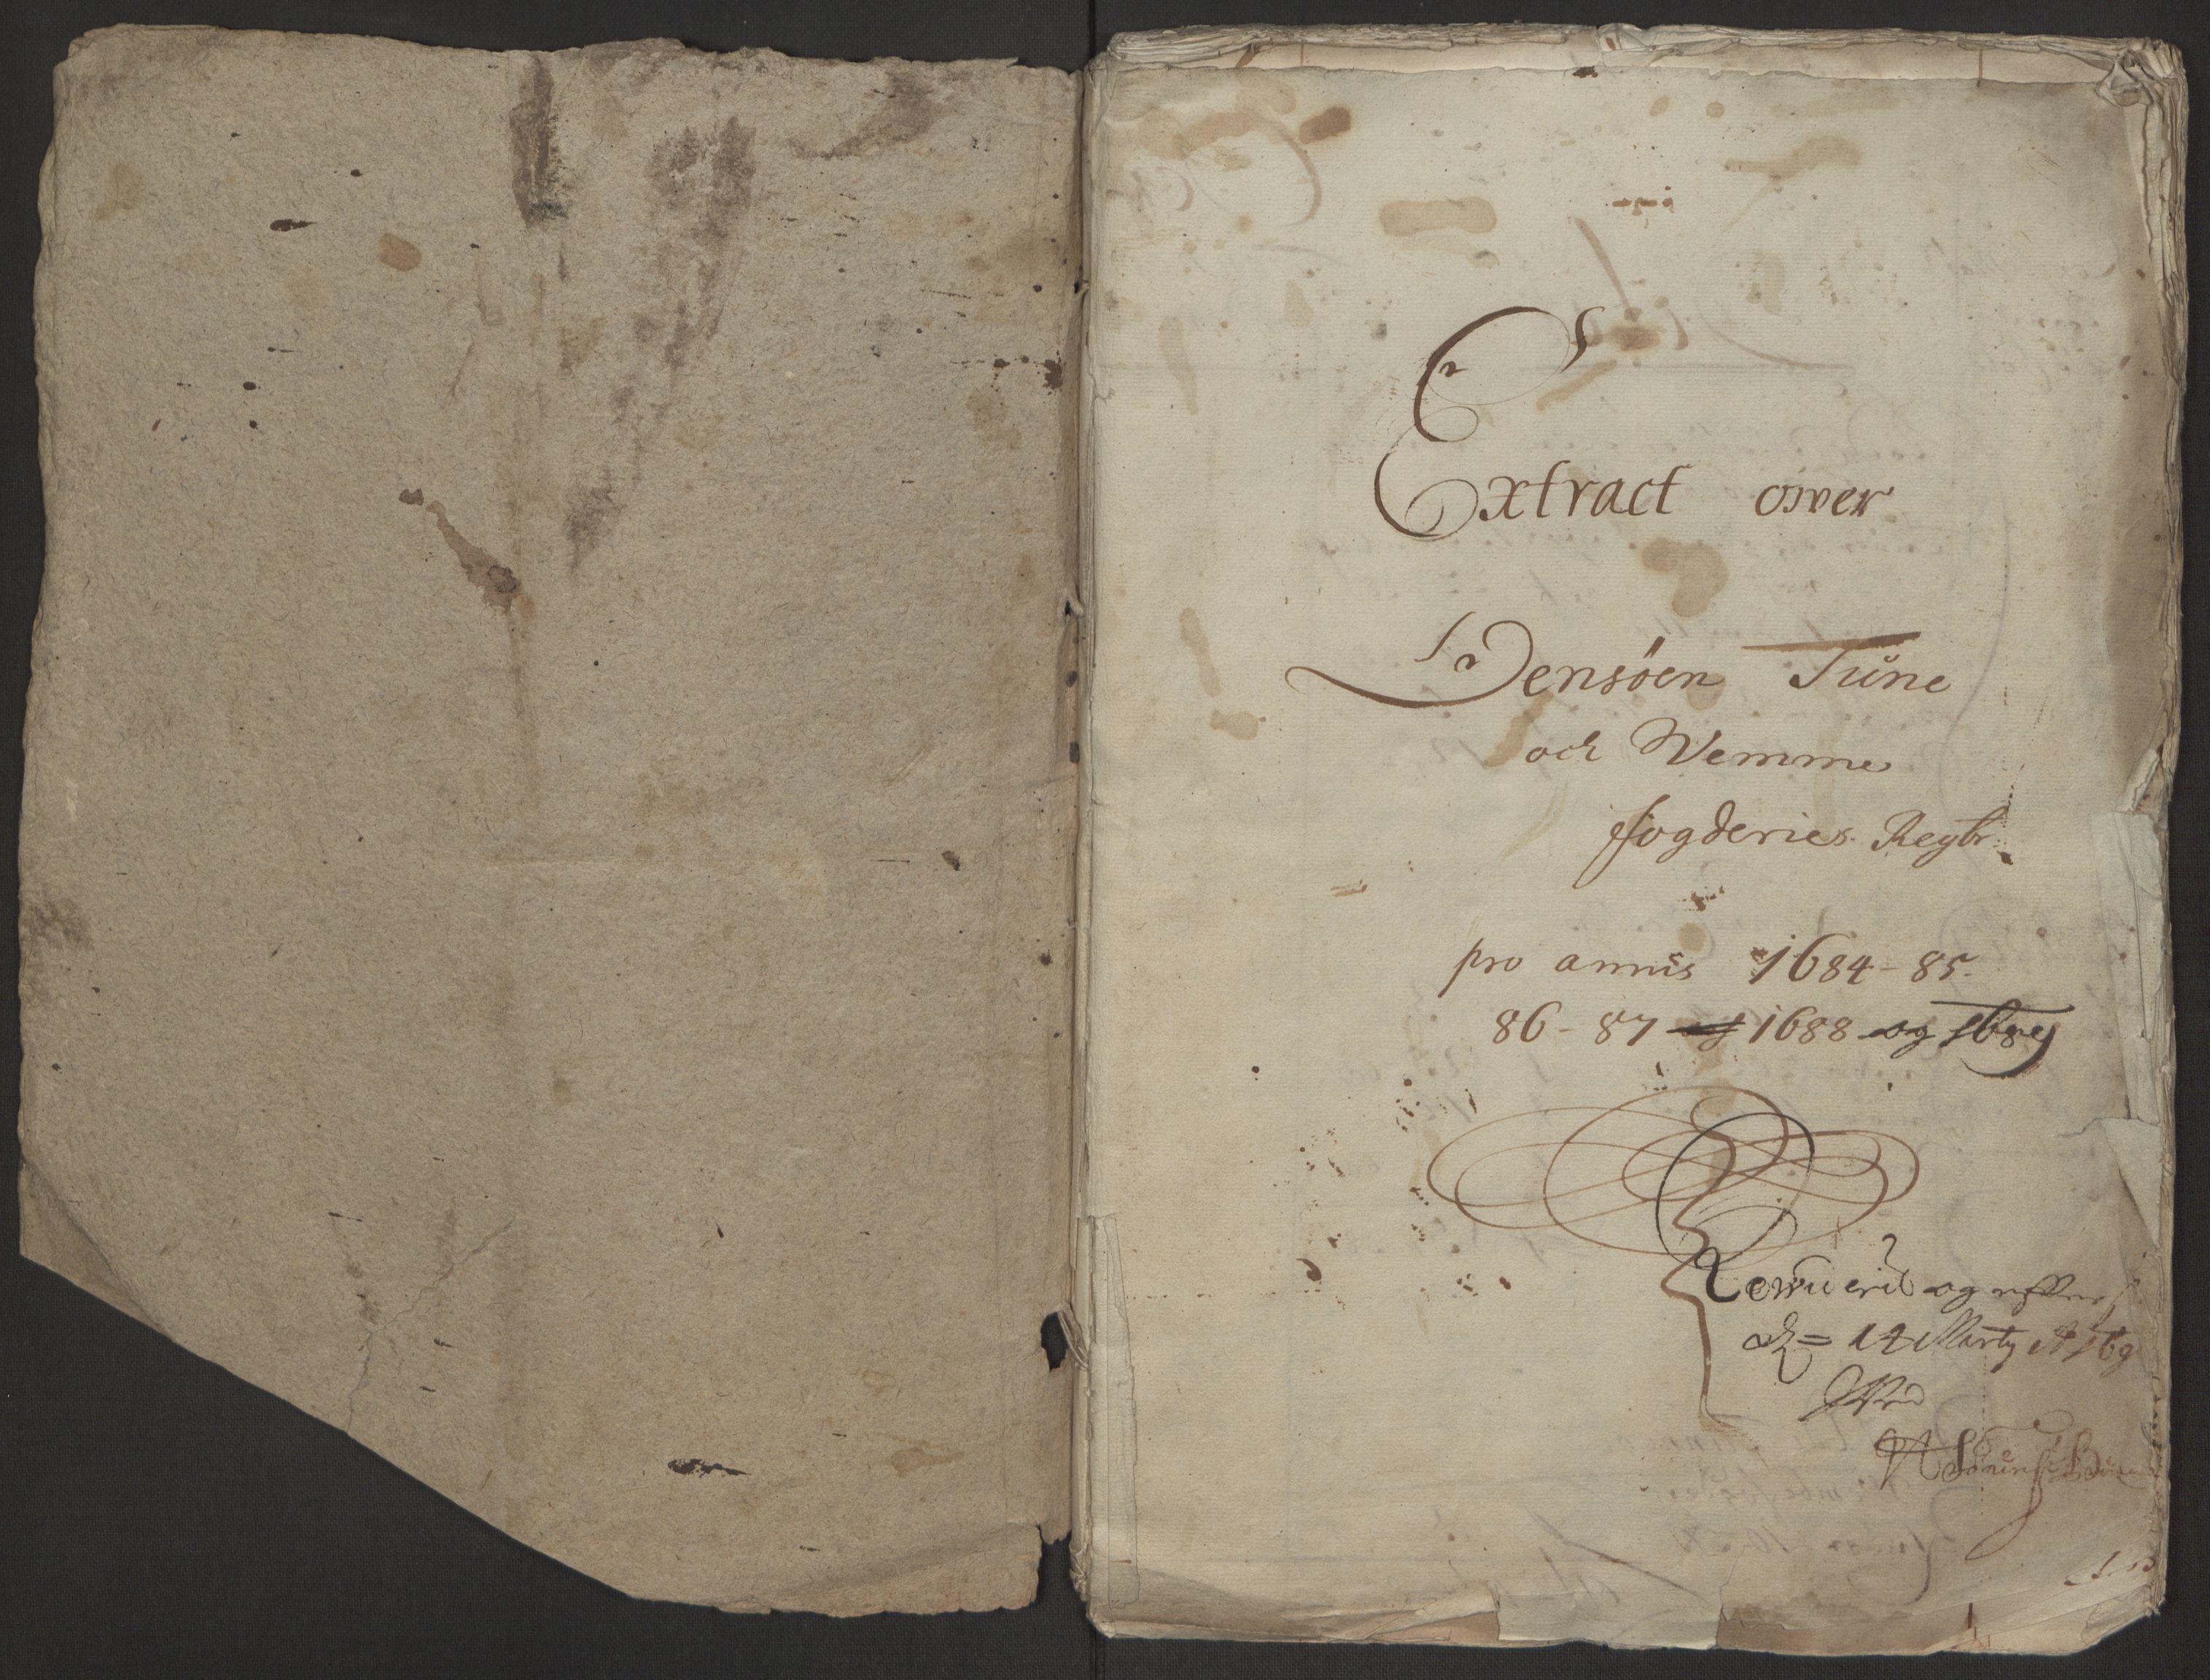 Extract over
Jensöen Tune
och Wemme
ffogderies Regbr.
pro annis 1684 - 85.
86 - 87 og 1688 og 1689
Rewuerit og efter
d= 14 Marty A 169
Wed